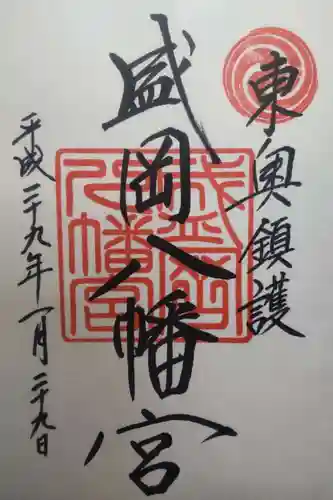 東奥鎮護
盛岡八幡宮
平成二十九年一月二十九日
盛岡八幡宮